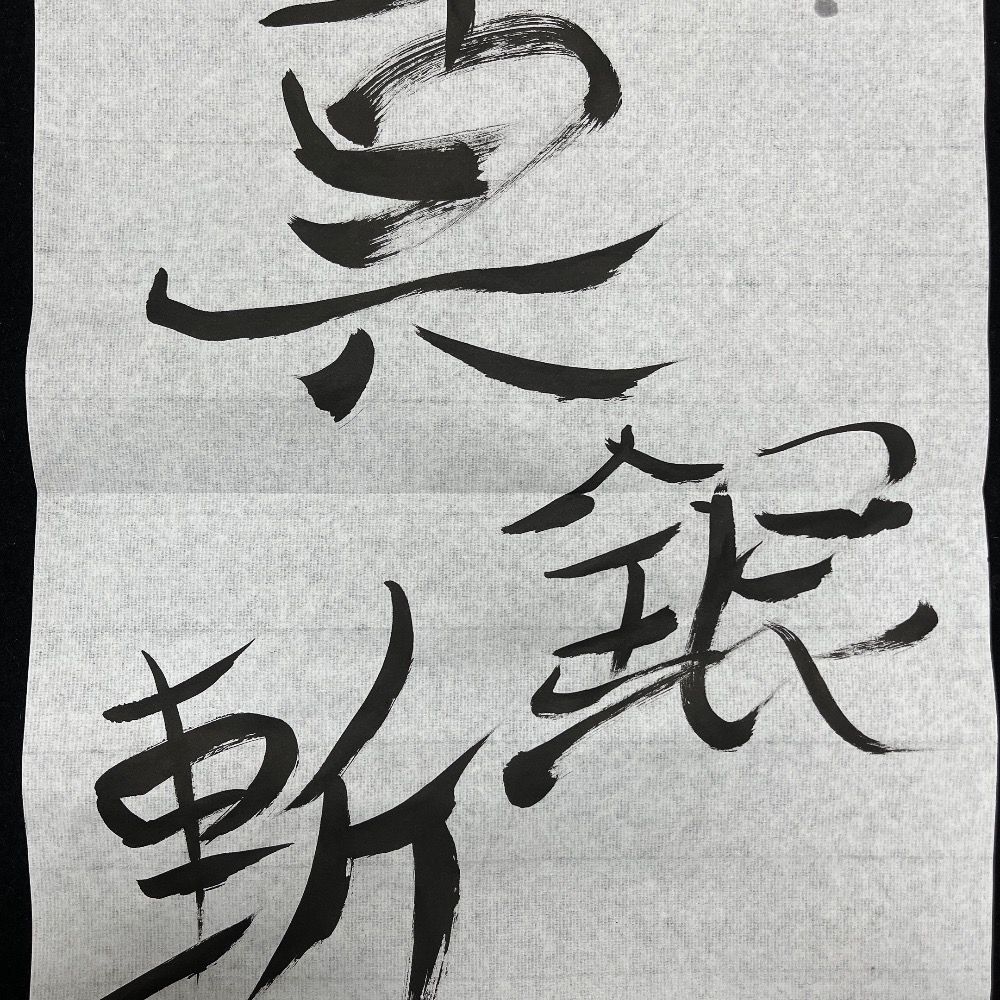 真
銀
斬